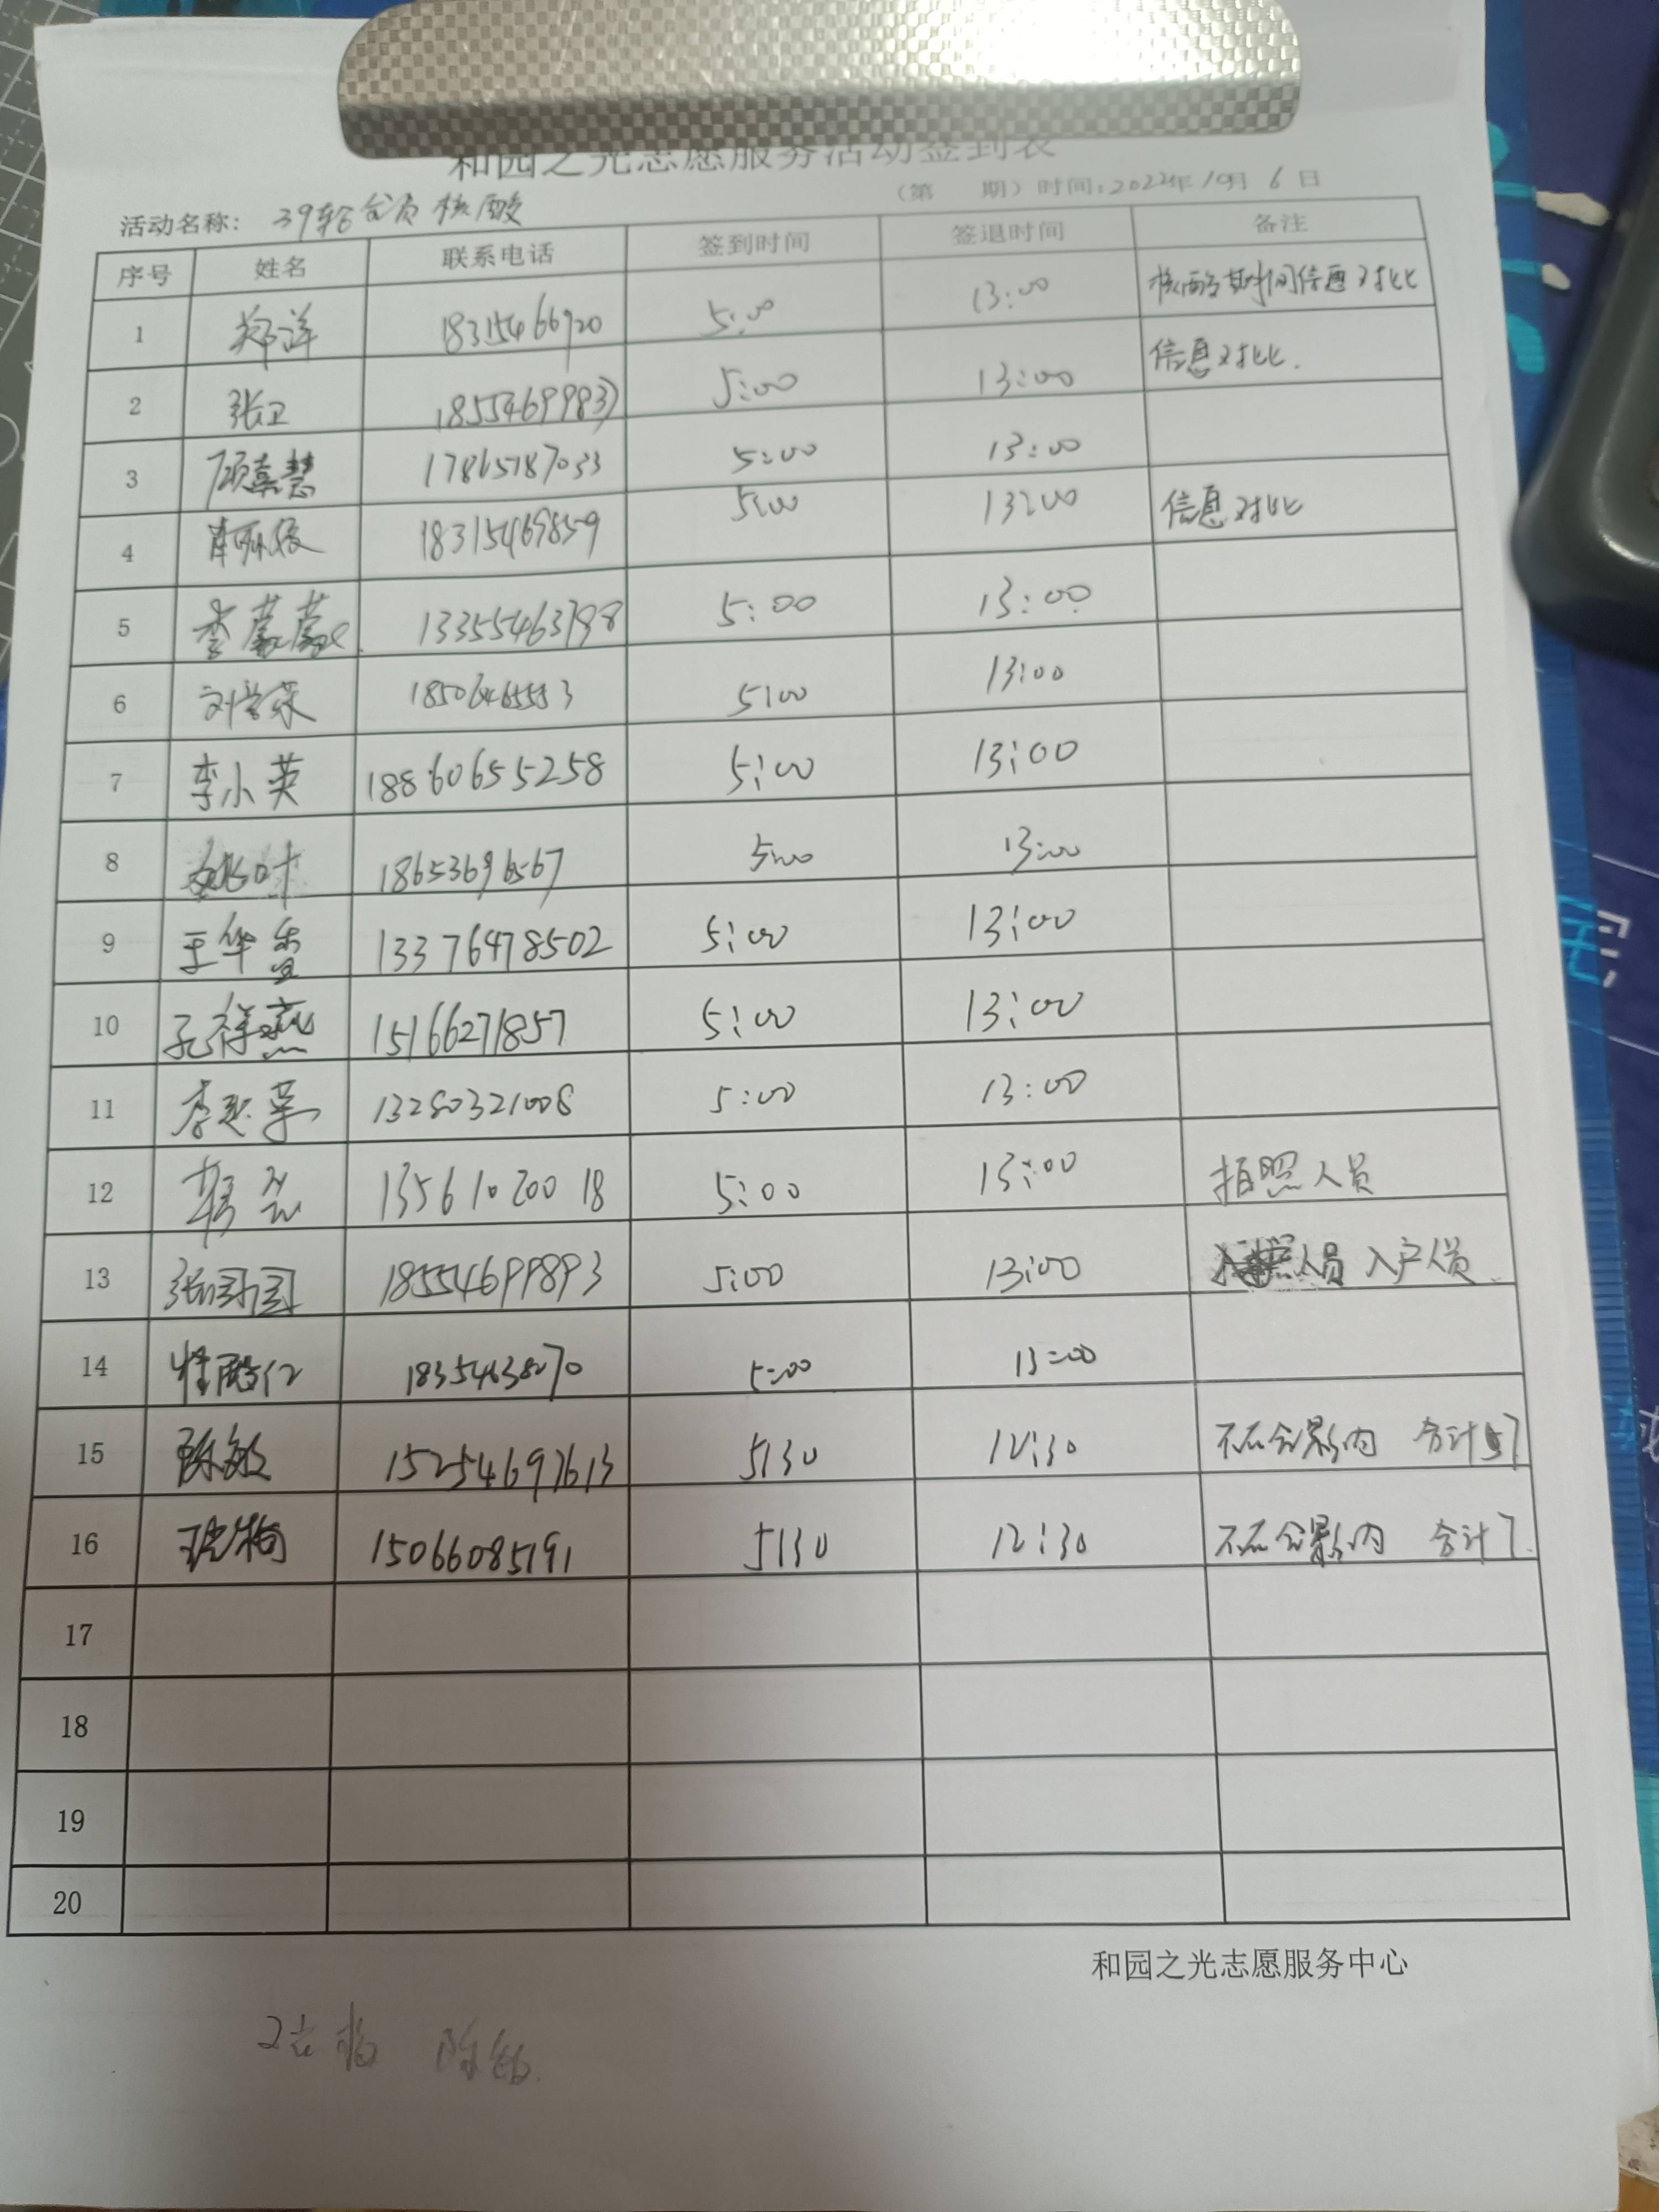 和园之光志愿服务活动签到表
(第 期)时间:2022年10月6日
活动名称: 39轮全员核酸
序号 姓名 联系电话 签到时间 签退时间 备注
1 郑洋 18315466920 5:00 13:00 信息对比
2 张卫 18554699837 5:00 13:00 信息对比.
3 17865187033 5:00 13:00
4 18315469859 5:00 13:00 信息对比
5 李蒙蒙 13355463798 5:00 13:00
6 刘 18506465553 5:00 13:00
7 李小英 18860655258 5:00 13:00
8 姚叶 18653696567 5:00 13:00
9 王华香 13376478502 5:00 13:00
10 孔祥燕 15166271857 5:00 13:00
11 李 13280321008 5:00 13:00
12 韩 13561020018 5:00 13:00 拍照人员
13 张 18554699893 5:00 13:00 人员 入户人员
14 5:00 13:00
15 陈敏 15254697613 5:30 12:30 不在合影内 合计7
16 15066085191 5:30 12:30 不在合影内 合计7.
17
18
19
20
和园之光志愿服务中心
陈敏.